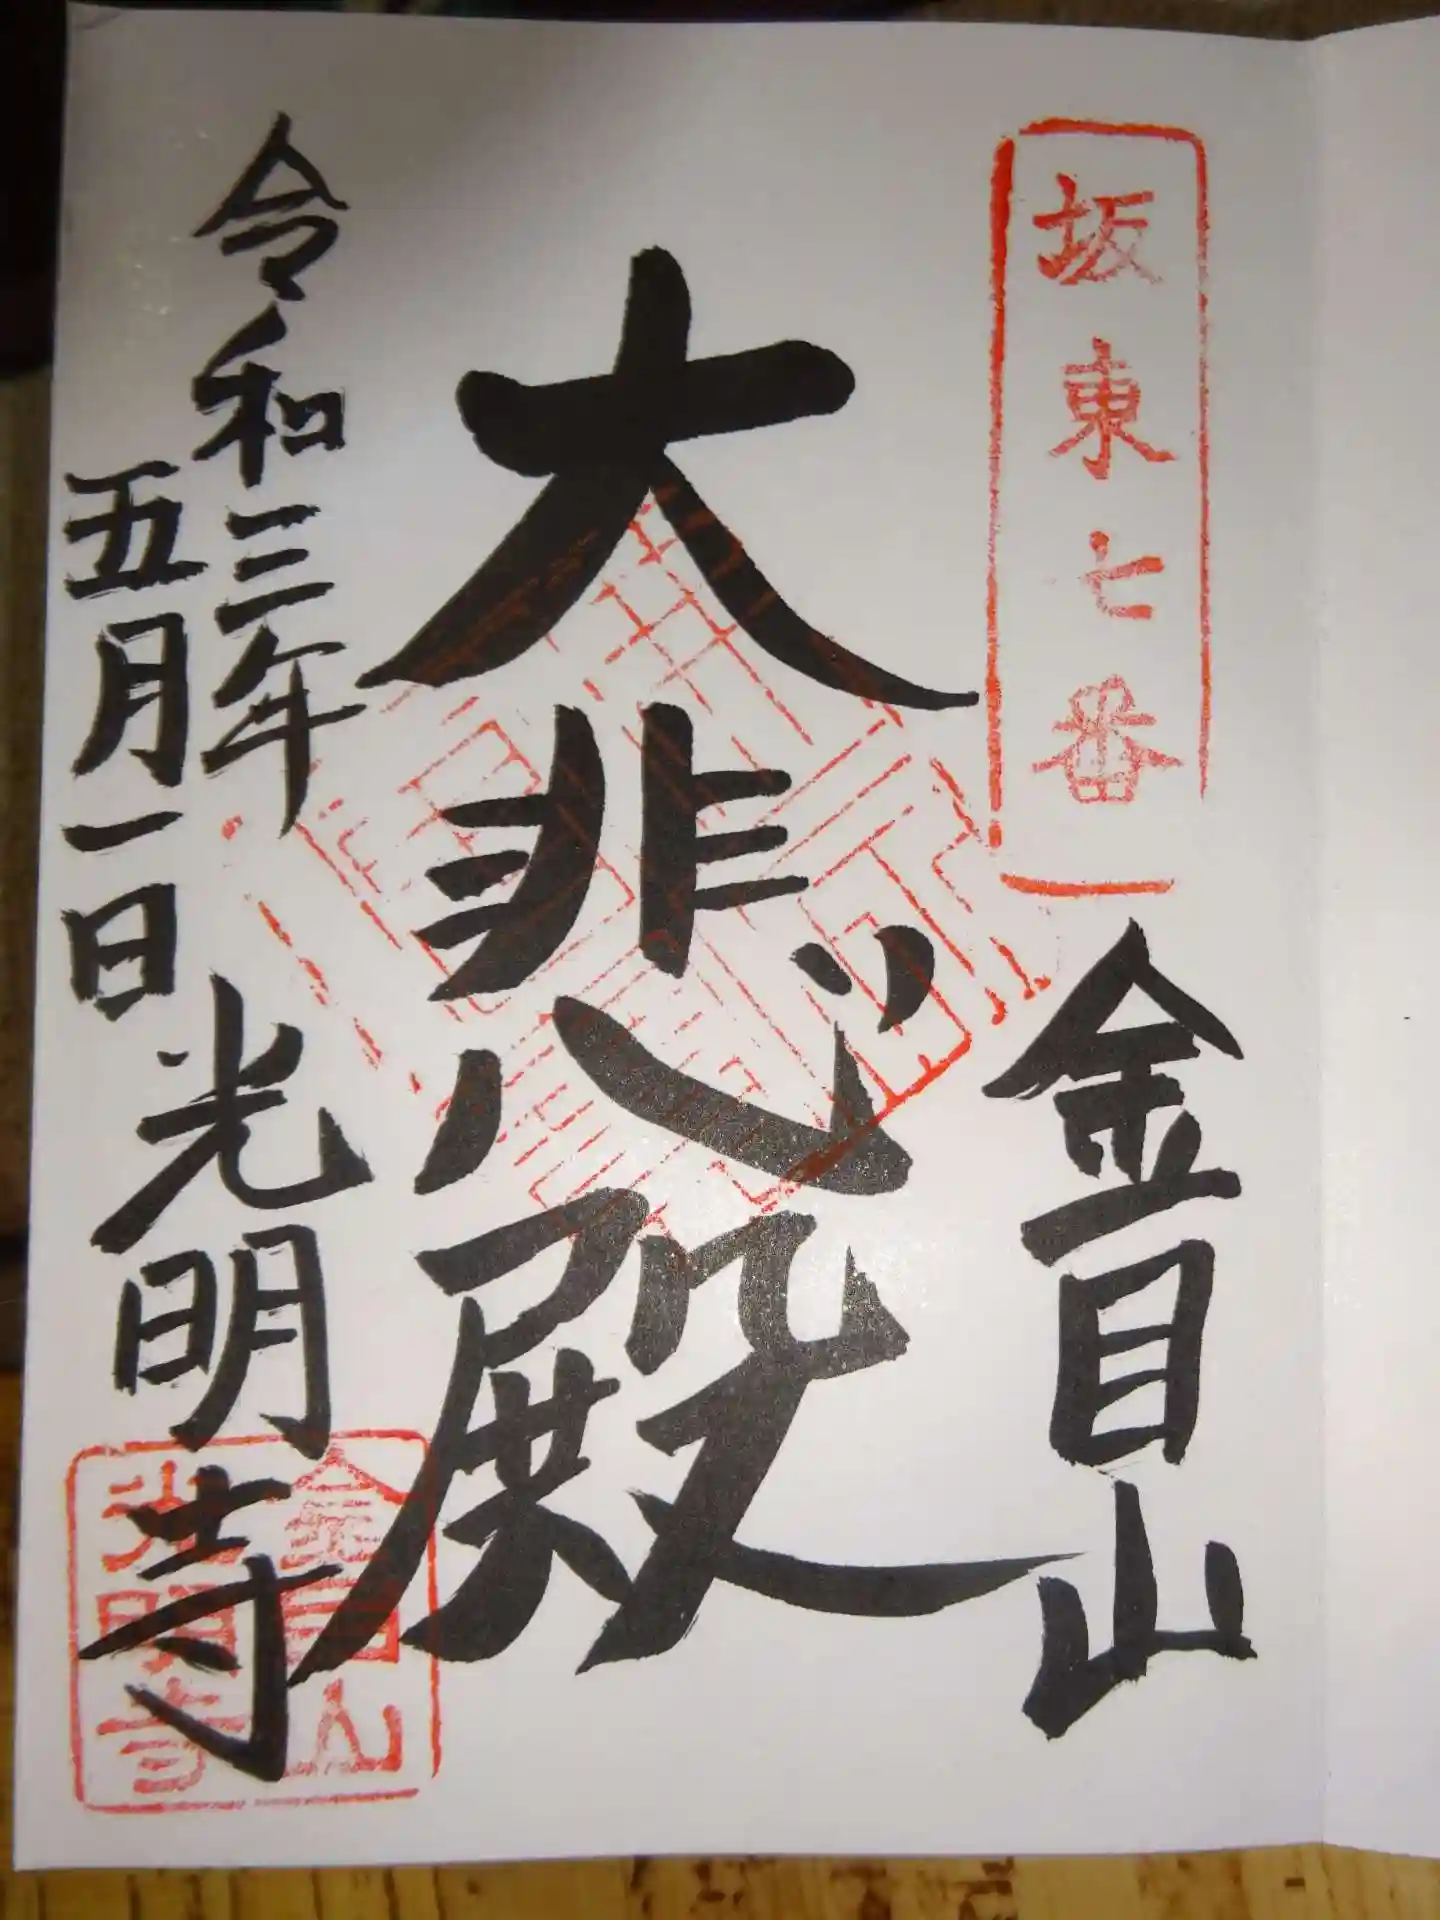 坂東七番
金目山
大悲殿
令和三年
五月一日
光明寺
金目山
光明寺